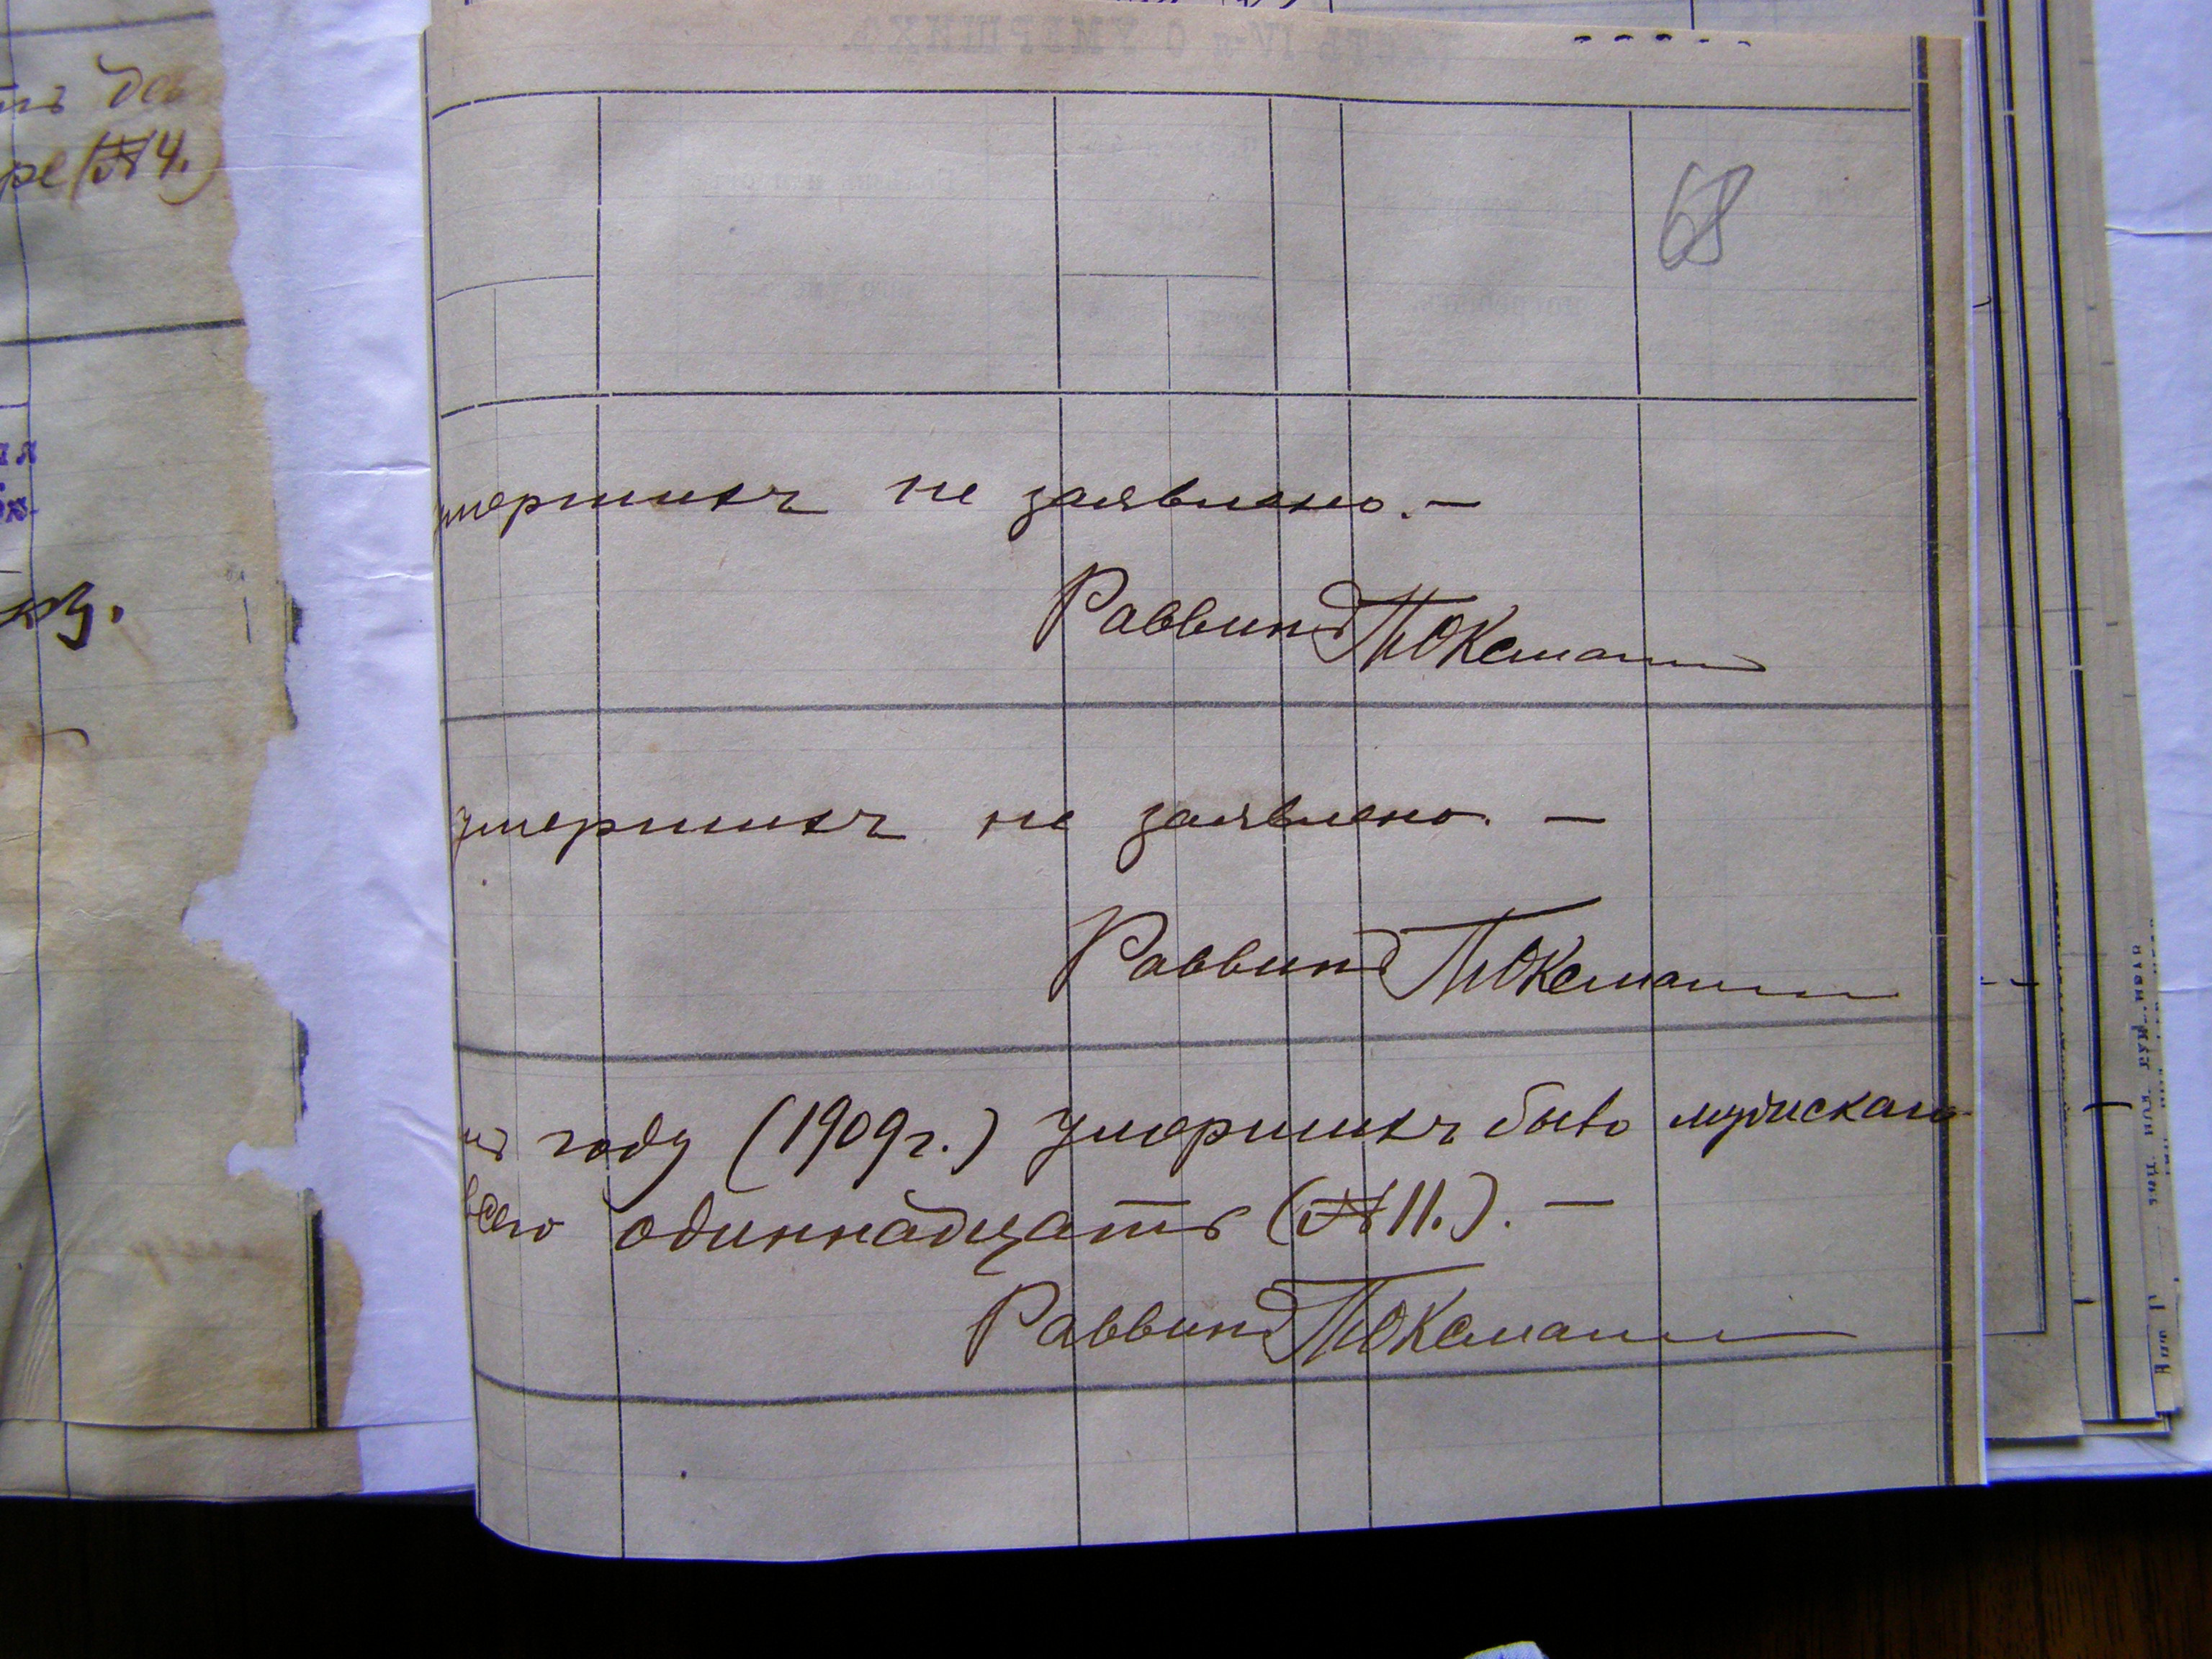 68
умершихъ не заявлено. —
Раввинъ
умершихъ не заявлено. —
Раввинъ
году (1909 г.) умершихъ было мужскаго
всего одиннадцать (№ 11.). —
Раввинъ
(№ 4.)